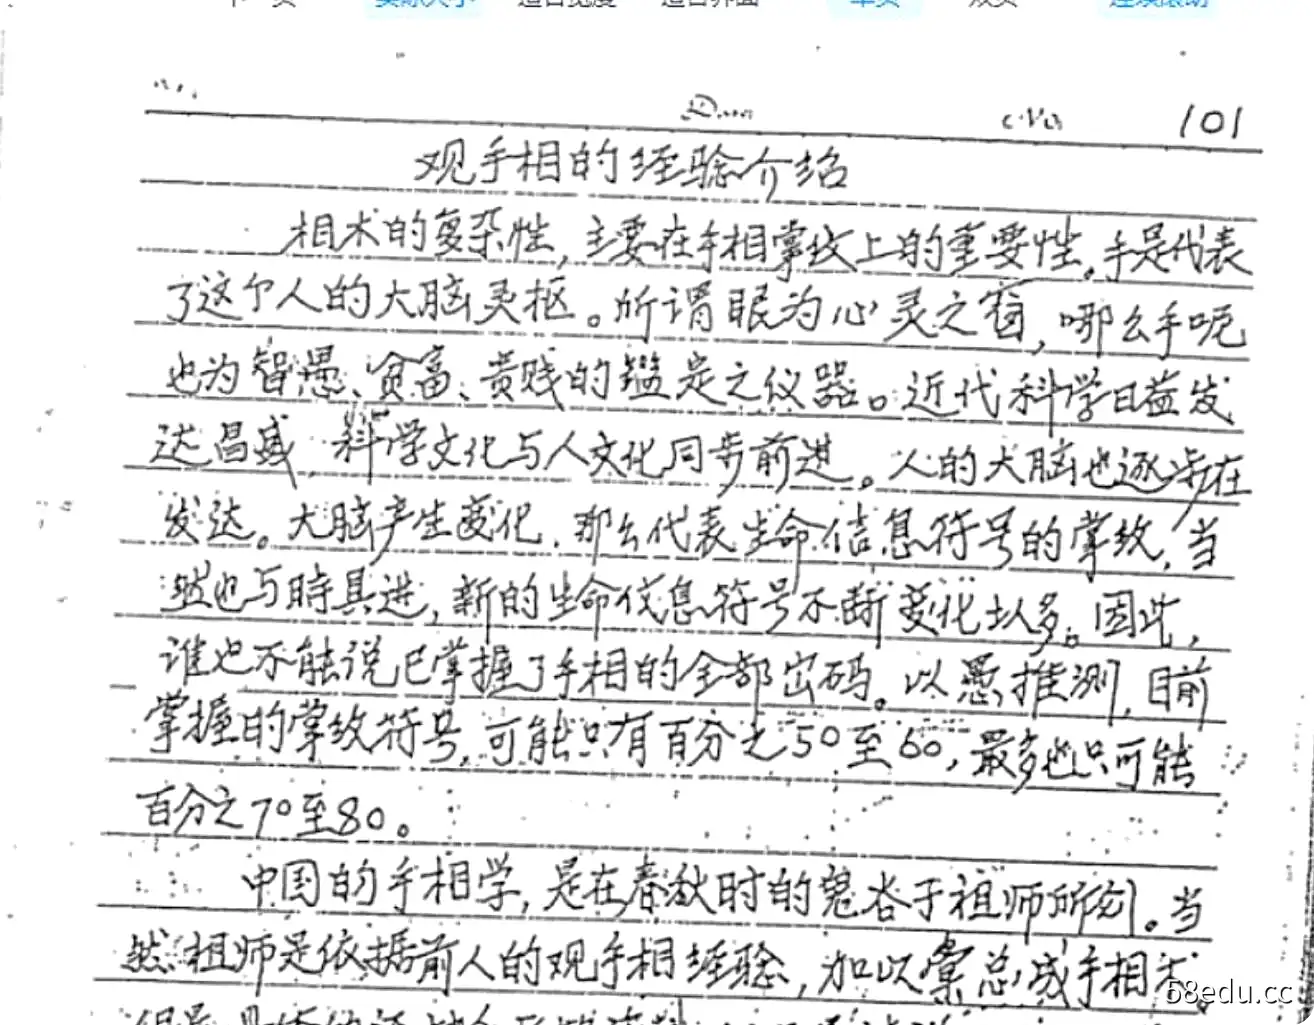 下一页 实际大小 适合宽度 适合界面 单页 双页 连续滚动
101
观手相的经验介绍
相术的复杂性，主要在手相掌纹上的重要性。手是代表
了这个人的大脑灵枢。所谓眼为心灵之窗，哪么手呢
也为智愚、贫富、贵贱的鑑定之仪器。近代科学日益发
达昌盛，科学文化与人文化同步前进。人的大脑也逐步在
发达。大脑产生变化，那么代表生命信息符号的掌纹，当
然也与時具进，新的生命信息符号不断变化增多。因此，
谁也不能说已掌握了手相的全部密码。以愚推测，目前
掌握的掌纹符号，可能只有百分之50至60，最多也只可能
百分之70至80。
中国的手相学，是在春秋时的鬼谷子祖师所创。当
然祖师是依据前人的观手相经验，加以彙总成手相术。
58edu.cc